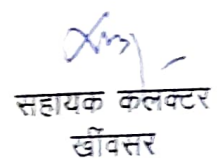 सहायक कलक्टर
खींवसर